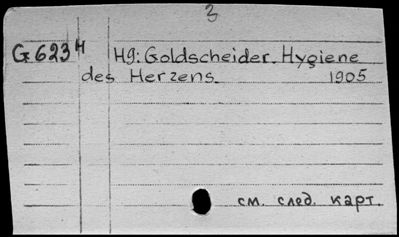 3
G 623 H Hg: Goldscheider. Hygiene
des Herzens. 1905
см. след. карт.